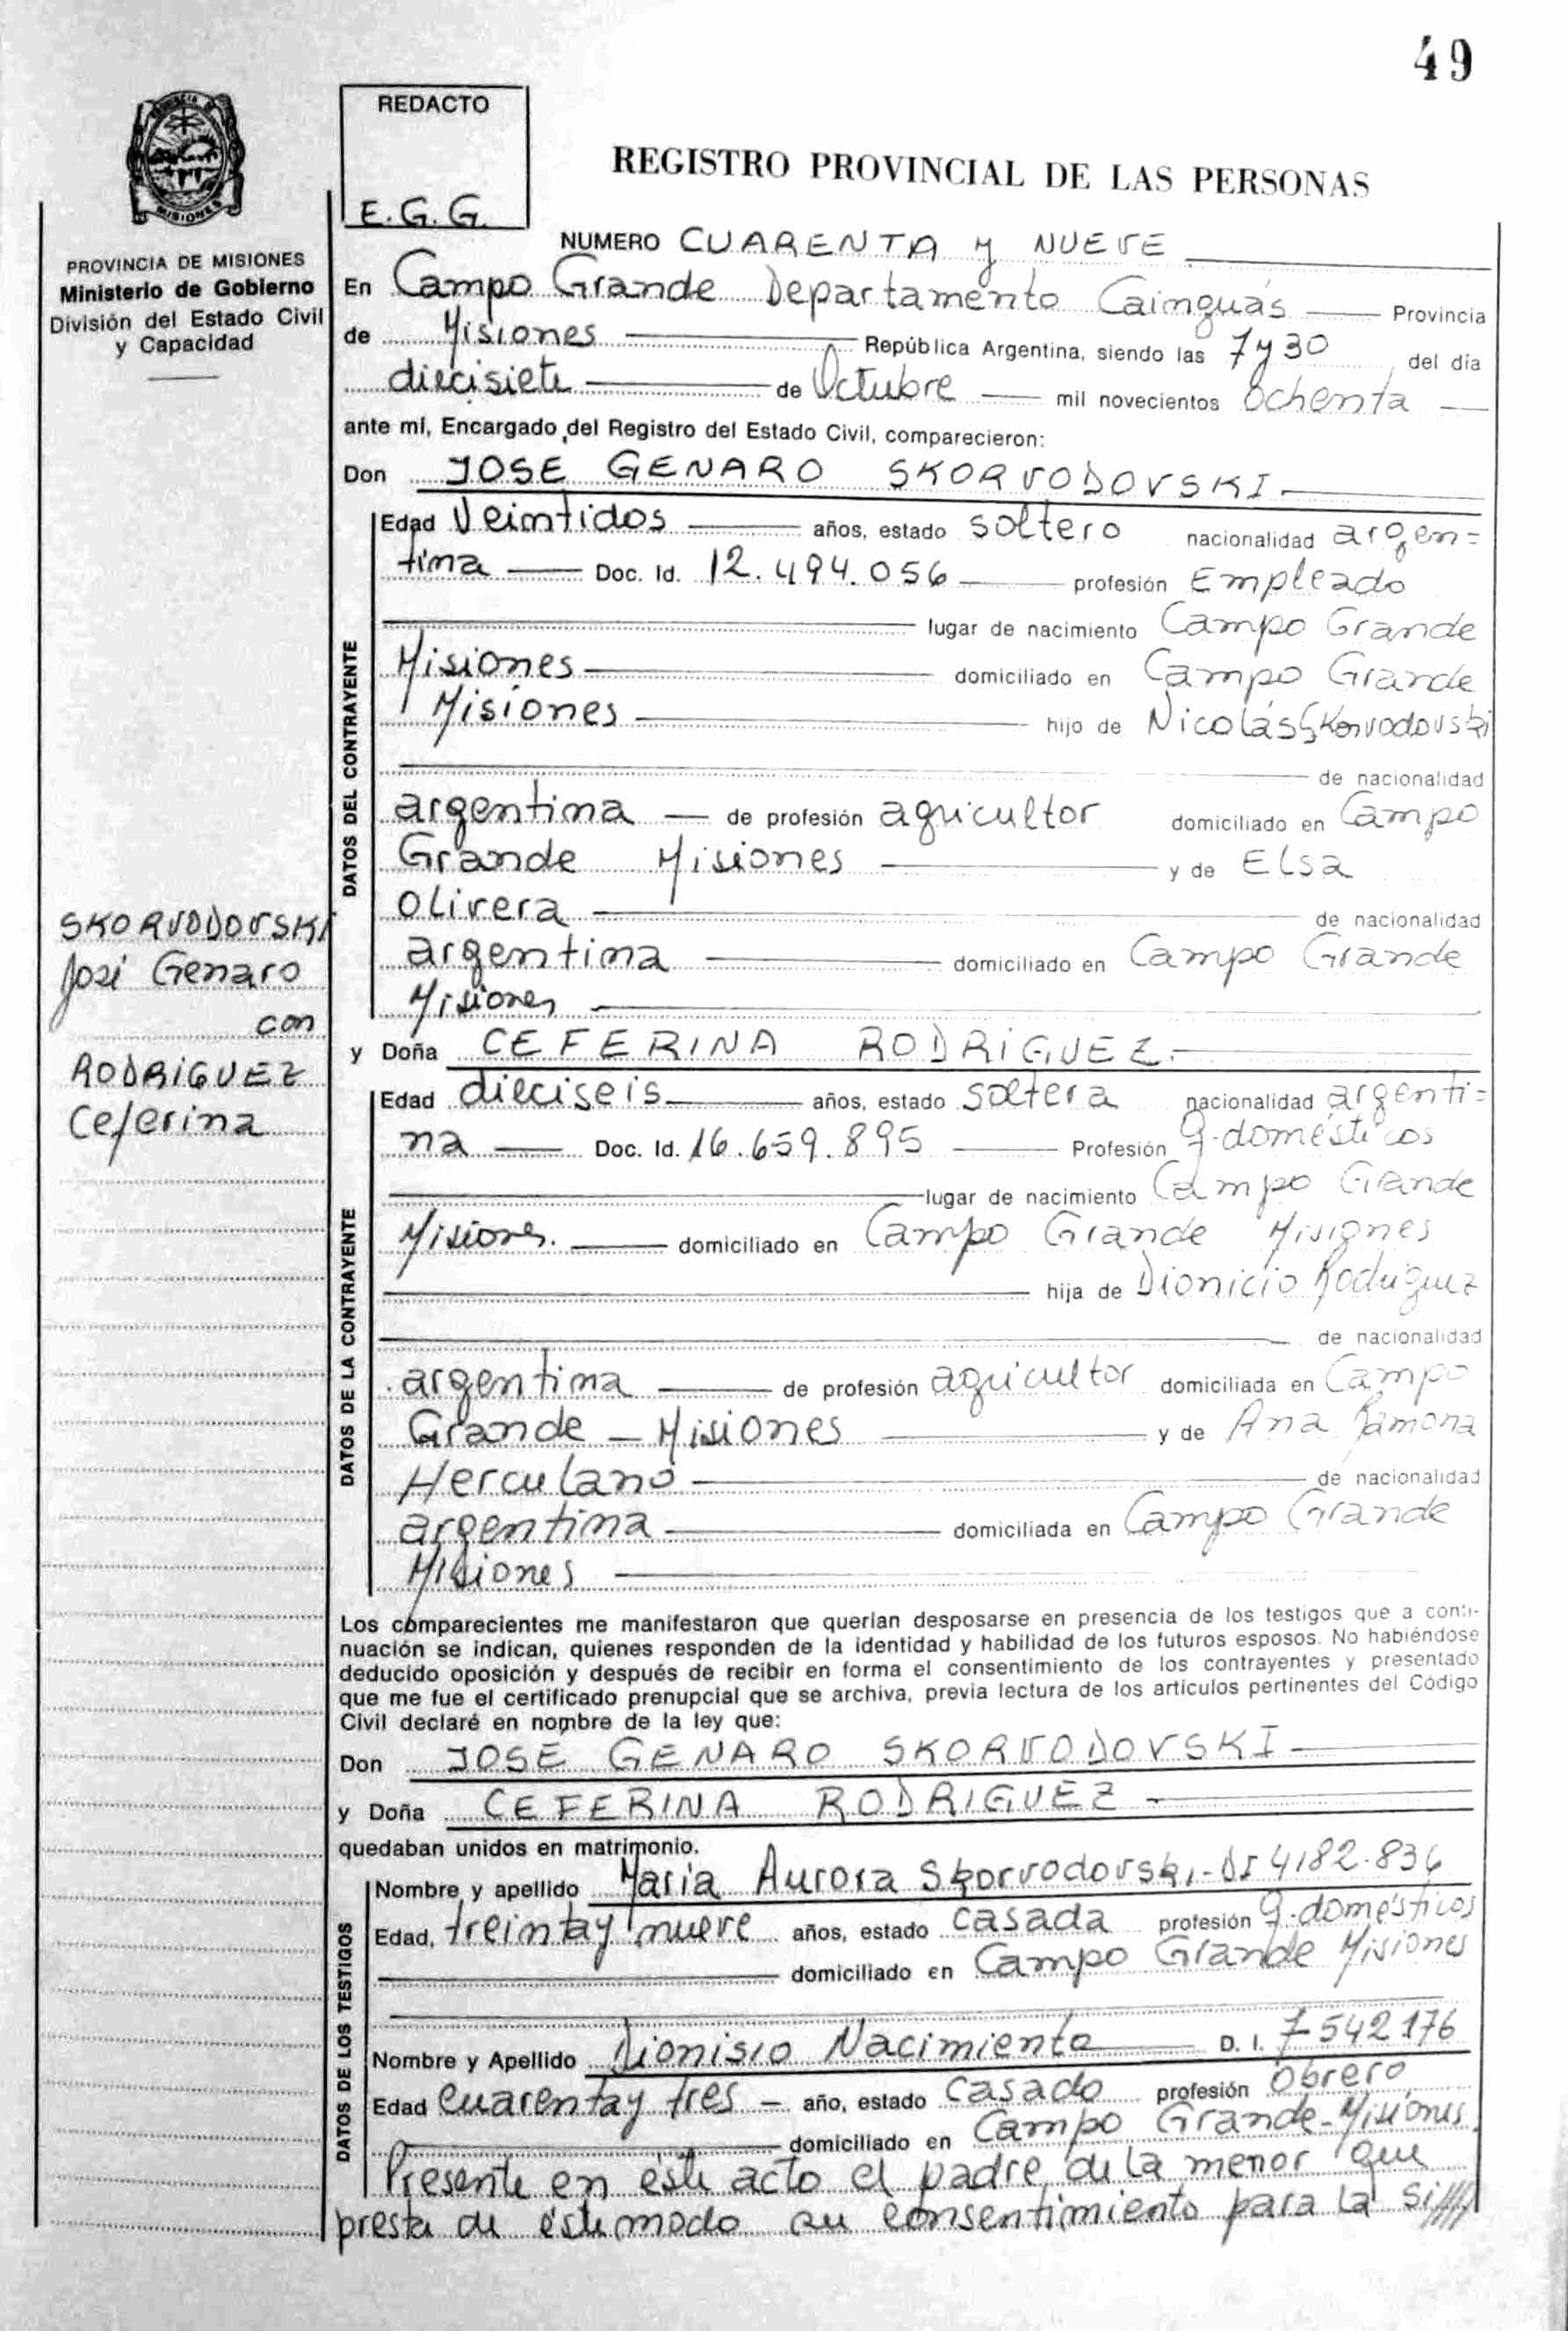 49
REDACTO
E.G.G.
REGISTRO PROVINCIAL DE LAS PERSONAS
MISIONES
PROVINCIA DE MISIONES
Ministerio de Gobierno
División del Estado Civil
y Capacidad
NUMERO CUARENTA y NUEVE
En Campo Grande Departamento Cainguás Provincia
de Misiones República Argentina, siendo las 7 y 30 del día
diecisiete de Octubre mil novecientos Ochenta
ante mí, Encargado del Registro del Estado Civil, comparecieron:
Don JOSE GENARO SKORVODOVSKI
DATOS DEL CONTRAYENTE
Edad Veintidos años, estado soltero nacionalidad argen=
tina Doc. Id. 12.494.056 profesión Empleado
lugar de nacimiento Campo Grande
Misiones domiciliado en Campo Grande
Misiones hijo de Nicolás Skorvodovski
de nacionalidad
argentina de profesión agricultor domiciliado en Campo
Grande Misiones y de Elsa
Olivera de nacionalidad
argentina domiciliado en Campo Grande
Misiones
SKORVODOVSKI
José Genaro
con
RODRIGUEZ
Ceferina
y Doña CEFERINA RODRIGUEZ
DATOS DE LA CONTRAYENTE
Edad dieciseis años, estado soltera nacionalidad argenti=
na Doc. Id. 16.659.895 Profesión q. domésticos
lugar de nacimiento Campo Grande
Misiones. domiciliado en Campo Grande Misiones
hija de Dionicio Rodriguez
de nacionalidad
argentina de profesión agricultor domiciliada en Campo
Grande - Misiones y de Ana Ramona
Herculano de nacionalidad
argentina domiciliada en Campo Grande
Misiones
Los comparecientes me manifestaron que querían desposarse en presencia de los testigos que a conti-
nuación se indican, quienes responden de la identidad y habilidad de los futuros esposos. No habiéndose
deducido oposición y después de recibir en forma el consentimiento de los contrayentes y presentado
que me fue el certificado prenupcial que se archiva, previa lectura de los artículos pertinentes del Código
Civil declaré en nombre de la ley que:
Don JOSE GENARO SKORVODOVSKI
y Doña CEFERINA RODRIGUEZ
quedaban unidos en matrimonio.
DATOS DE LOS TESTIGOS
Nombre y apellido Maria Aurora Skorvodovski - DI 4182.836
Edad, treinta y nueve años, estado casada profesión q. domésticos
domiciliado en Campo Grande Misiones
Nombre y Apellido Dionisio Nacimiento D. I. 7542176
Edad cuarenta y tres - año, estado Casado profesión Obrero
domiciliado en Campo Grande - Misiones
Presente en éste acto el padre de la menor que
presta de éste modo su consentimiento para la